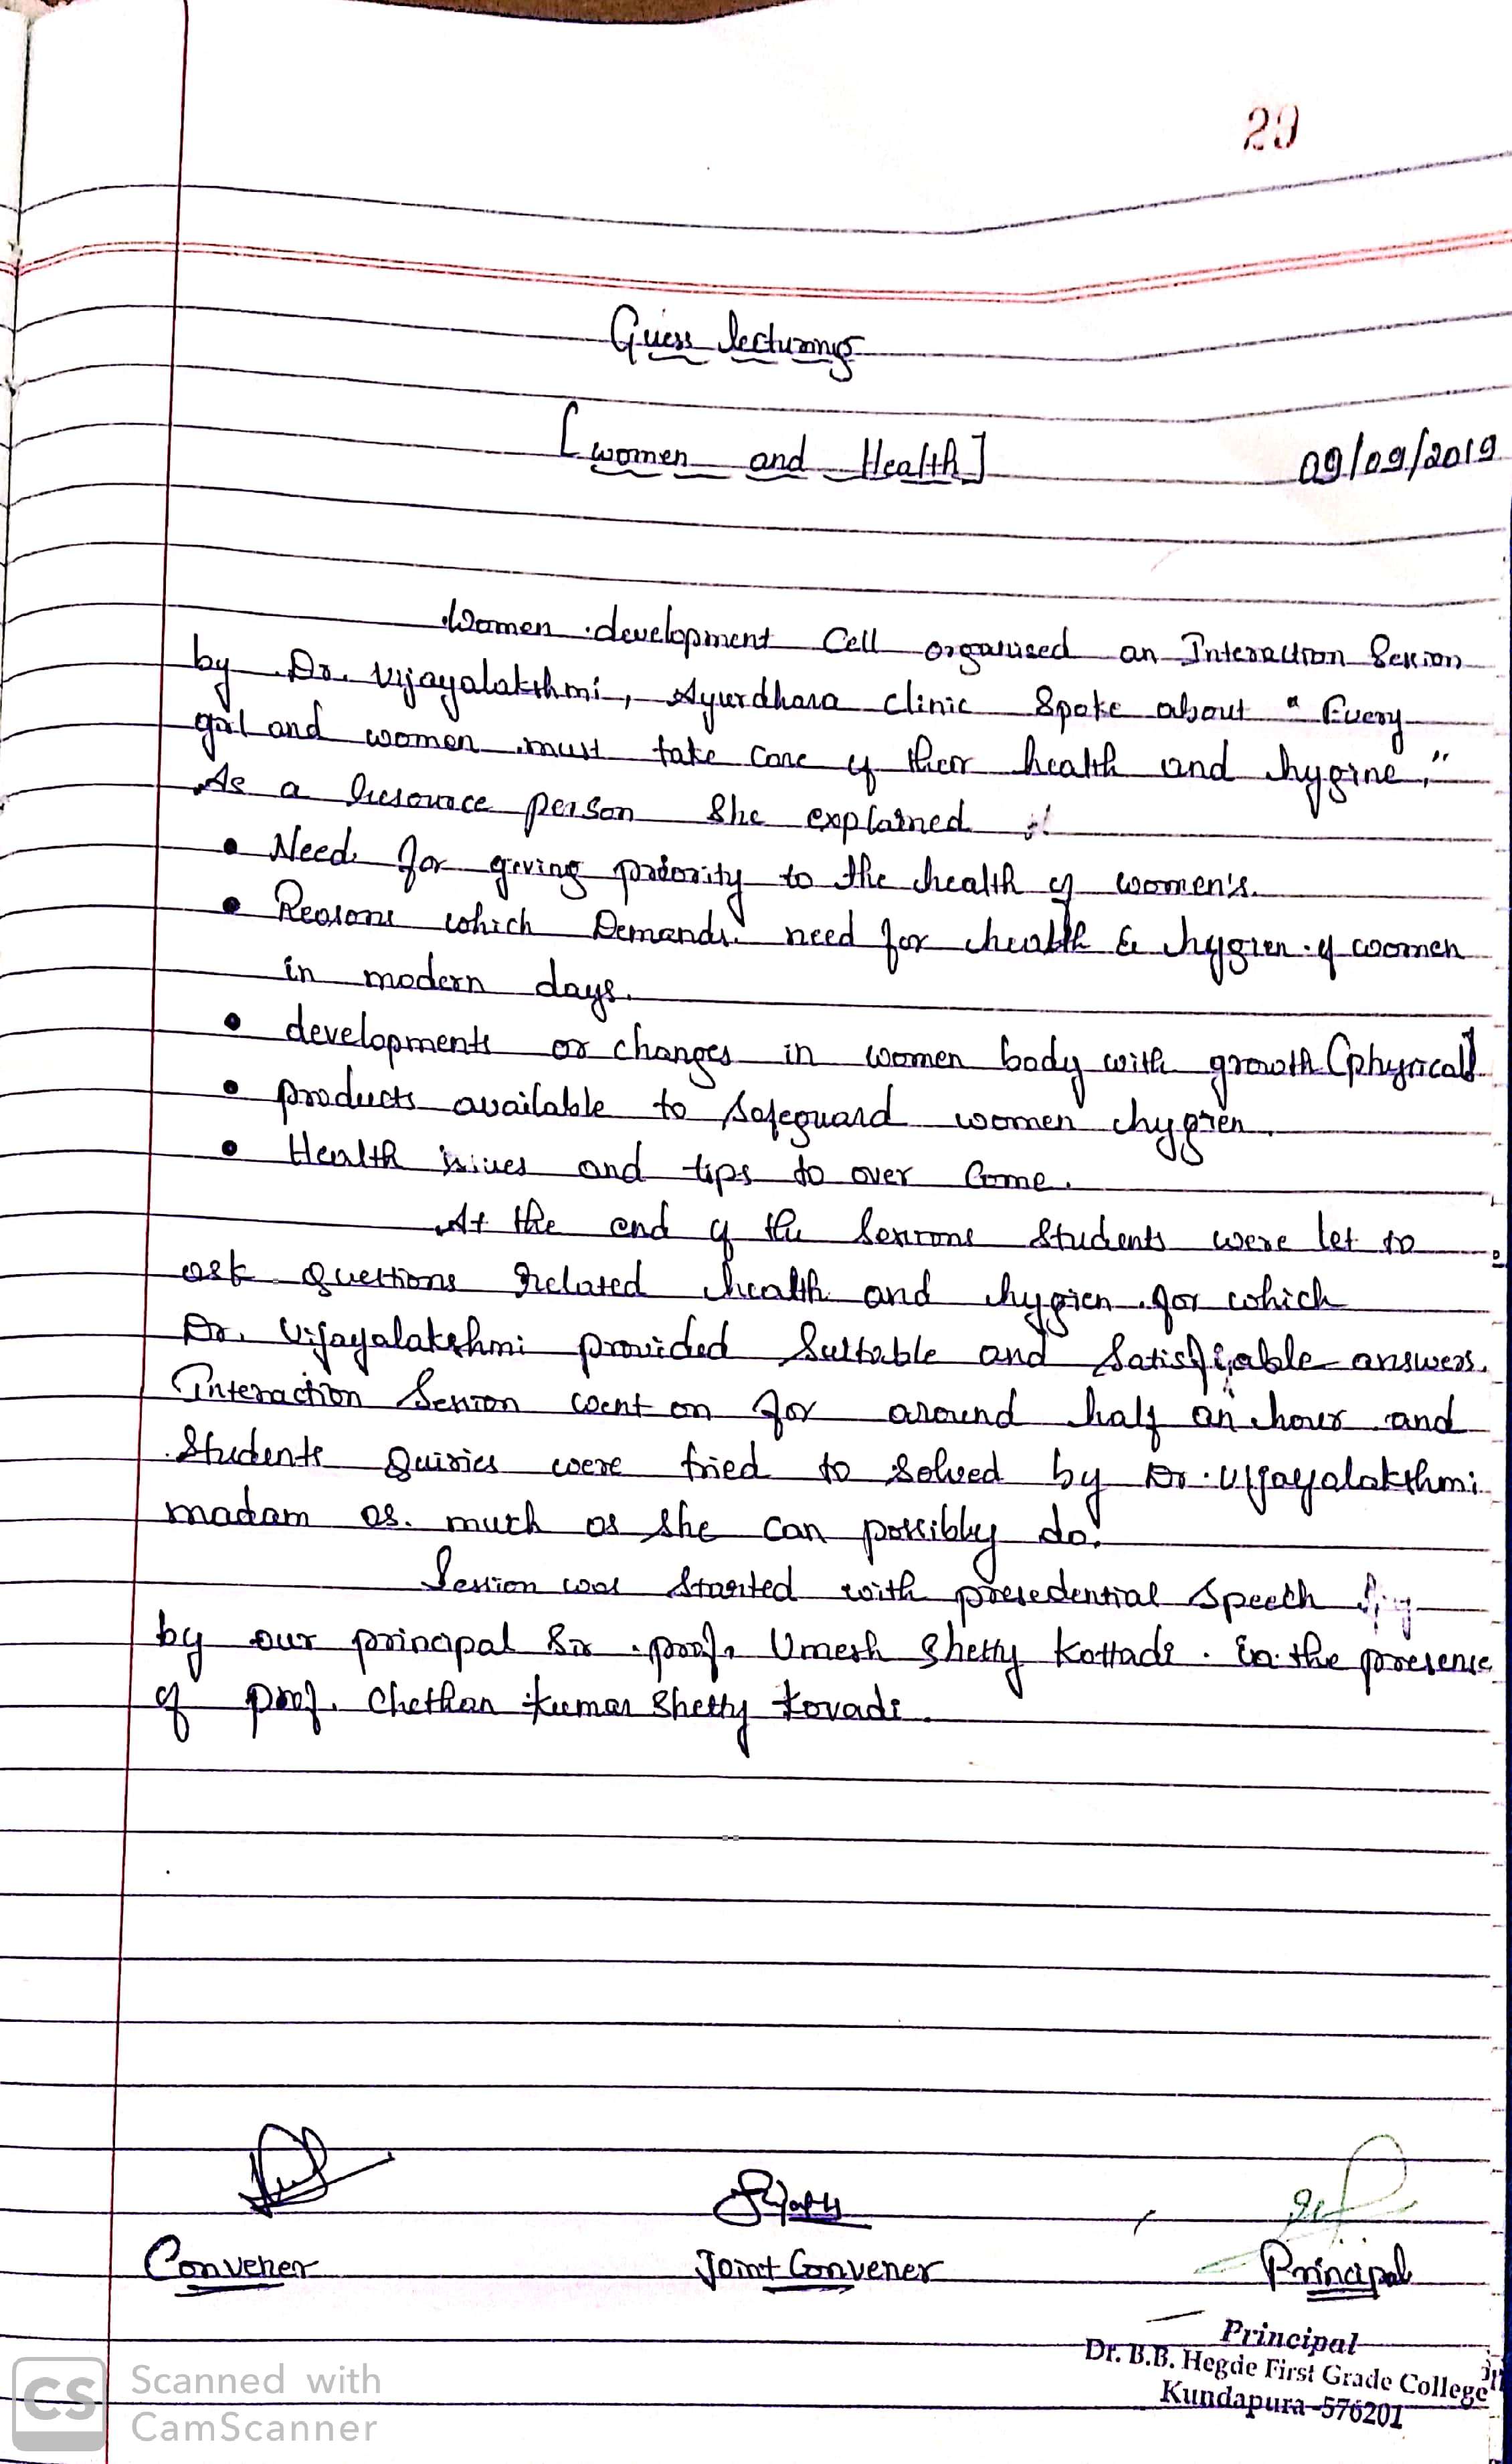 29
Guess lecturing
[women and Health]
09/09/2019
Women development Cell organised an Interaction Session
by Dr. Vijayalakshmi, Ayurdhara clinic Spoke about "Every
girl and women must take care of their health and hygine,"
As a resource person She explained
• Need for giving priority to the health of women's.
• Reasons which Demands need for health & hygien of women
in modern days.
• developments or changes in women body with growth (physical)
• products available to safeguard women hygien.
• Health issues and tips to over Come.
At the end of the Sessions Students were let to
ask Questions related health and hygien for which
Dr. Vijayalakshmi provided Suitable and Satisfiable answers.
Interaction Session went on for around half an hour and
Students Quiries were tried to solved by Dr. Vijayalakshmi
madam as much as she can possibly do.
Session was Started with presedential speech
by our principal Sir prof. Umesh Shetty Kottadi. In the presense
of prof. Chethan kumar Shetty kovadi.
Convener
Joint Convener
Principal
Principal
Dr. B.B. Hegde First Grade College
Kundapura-576201
CS
Scanned with
CamScanner